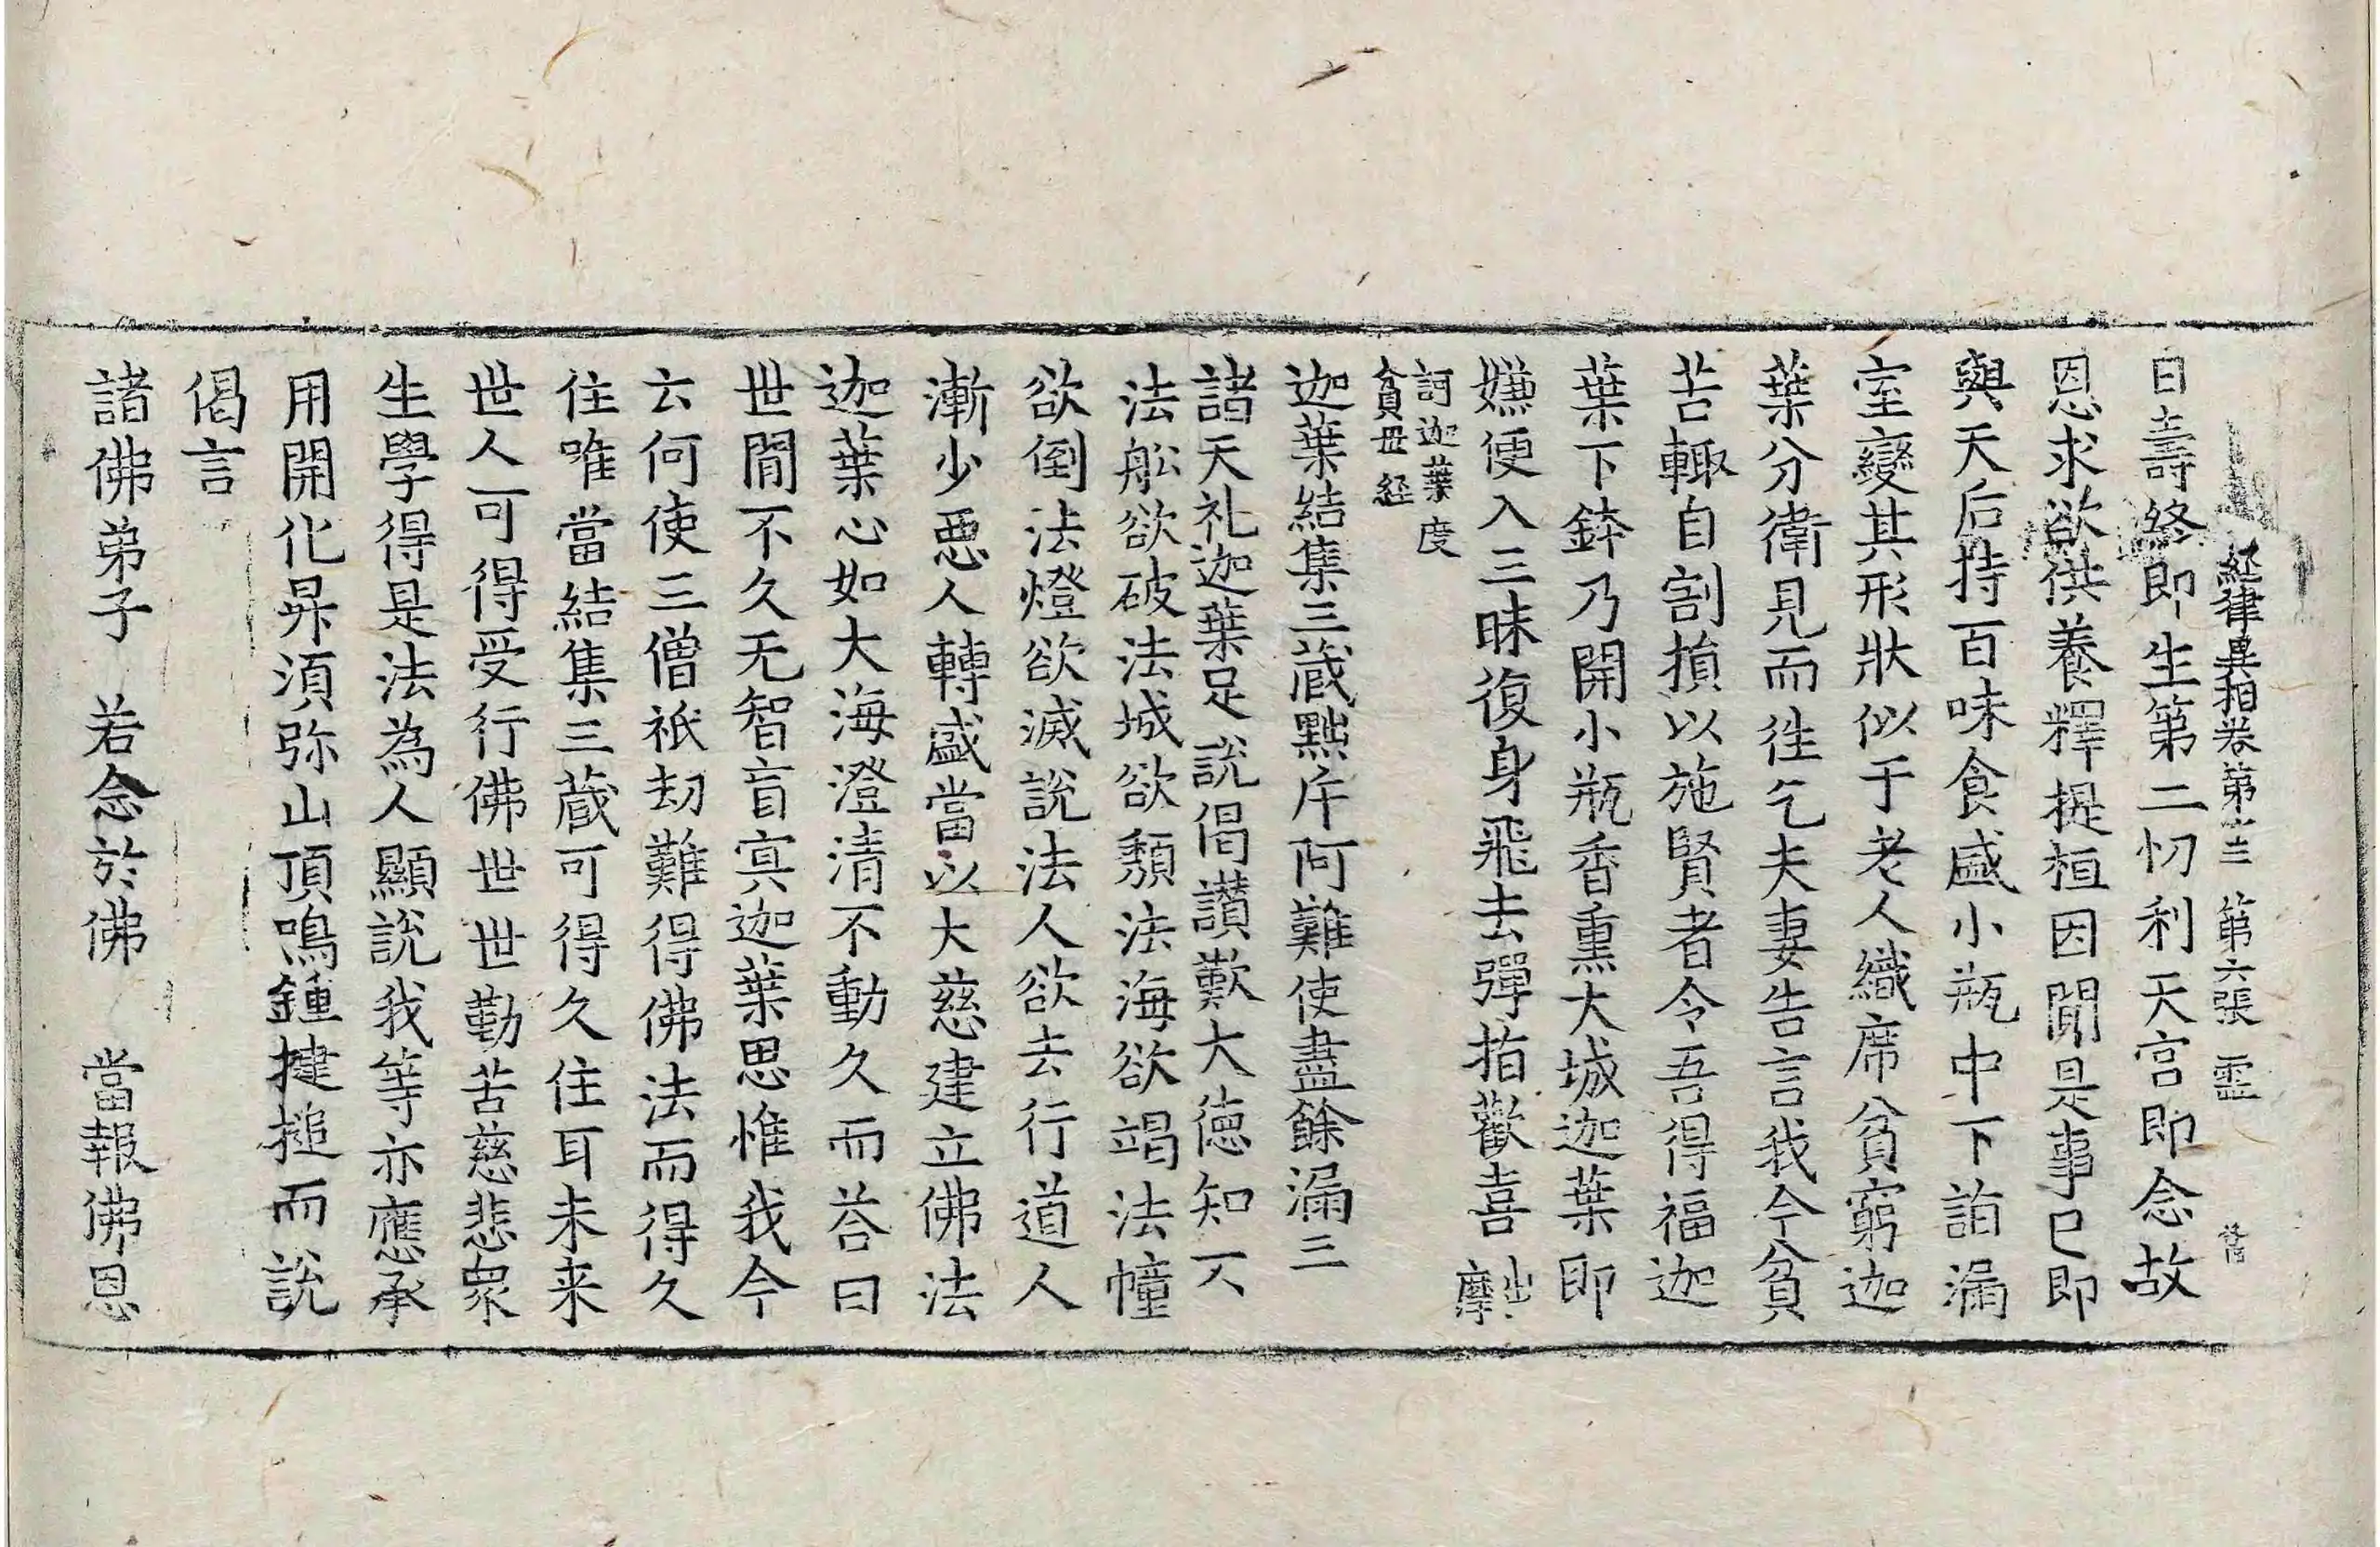 経律異相卷第十三　第六張　霊
日壽終即生第二忉利天宫即念故
恩求欲供養釋提桓因聞是事已即
與天后持百味食盛小瓶中下詣漏
室變其形狀似于老人織席貧窮迦
葉分衛見而徃乞夫妻告言我今貧
苦輙自割損以施賢者令吾得福迦
葉下鉢乃開小瓶香熏大城迦葉即
嫌便入三昧復身飛去彈指歡喜出摩
訶迦葉度
貧母経
迦葉結集三蔵黜斥阿難使盡餘漏三
諸天礼迦葉足説偈讃歎大徳知不
法舩欲破法城欲頽法海欲竭法幢
欲倒法燈欲滅説法人欲去行道人
漸少悪人轉盛當以大慈建立佛法
迦葉心如大海澄清不動久而荅曰
世間不久无智盲㝠迦葉思惟我今
云何使三僧祇劫難得佛法而得久
住唯當結集三蔵可得久住耳未来
世人可得受行佛世世勤苦慈悲衆
生學得是法為人顯説我等亦應承
用開化昇須弥山頂鳴鍾揵搥而説
偈言
諸佛弟子　若念於佛　當報佛恩